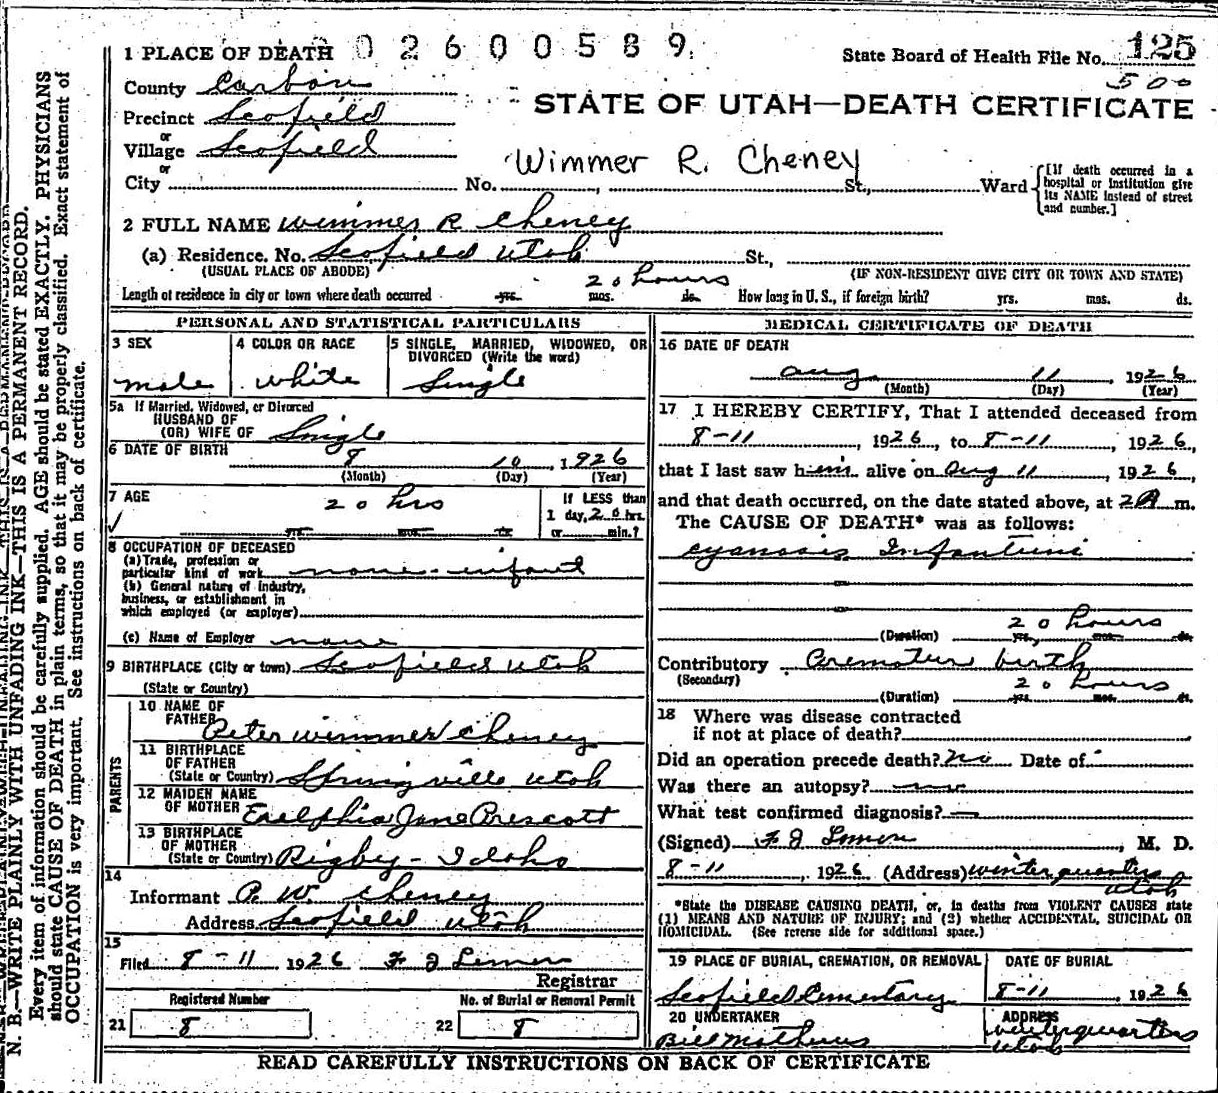 1 PLACE OF DEATH 02600589. State Board of Health File No. 125
500
County Carbon
STATE OF UTAH—DEATH CERTIFICATE
Precinct Scofield
or
Village Scofield
Wimmer R. Cheney
or
City No. St., Ward [If death occurred in a hospital or institution give its NAME instead of street and number.]
2 FULL NAME Wimmer R Cheney
(a) Residence. No. Scofield Utah St.,
(USUAL PLACE OF ABODE) (IF NON-RESIDENT GIVE CITY OR TOWN AND STATE)
20 hours
Length of residence in city or town where death occurred yrs. mos. ds. How long in U. S., if foreign birth? yrs. mos. ds.
PERSONAL AND STATISTICAL PARTICULARS
3 SEX
male
4 COLOR OR RACE
white
5 SINGLE, MARRIED, WIDOWED, OR DIVORCED (Write the word)
Single
5a If Married, Widowed, or Divorced
HUSBAND OF
(OR) WIFE OF Single
6 DATE OF BIRTH 8 10, 1926
(Month) (Day) (Year)
7 AGE 20 hrs
yrs. mos. ds.
If LESS than
1 day, 20 hrs.
or min.?
8 OCCUPATION OF DECEASED
(a) Trade, profession or
particular kind of work none - infant
(b) General nature of industry,
business, or establishment in
which employed (or employer)
(c) Name of Employer none
9 BIRTHPLACE (City or town) Scofield Utah
(State or Country)
PARENTS
10 NAME OF
FATHER Peter Wimmer Cheney
11 BIRTHPLACE
OF FATHER
(State or Country) Springville Utah
12 MAIDEN NAME
OF MOTHER Jane Prescott
13 BIRTHPLACE
OF MOTHER
(State or Country) Rigby - Idaho
14
Informant P. W. Cheney
Address Scofield Utah
15
Filed 8-11 1926 F J Lemon
Registrar
Registered Number
21 8
No. of Burial or Removal Permit
22 8
MEDICAL CERTIFICATE OF DEATH
16 DATE OF DEATH
Aug 11, 1926
(Month) (Day) (Year)
17 I HEREBY CERTIFY, That I attended deceased from
8-11, 1926, to 8-11, 1926,
that I last saw him alive on Aug 11, 1926,
and that death occurred, on the date stated above, at 2 A m.
The CAUSE OF DEATH* was as follows:
cyanosis Infantum
20 hours
(Duration) yrs. mos. ds.
Contributory Premature birth
(Secondary)
20 hours
(Duration) yrs. mos. ds.
18 Where was disease contracted
if not at place of death?
Did an operation precede death? no Date of
Was there an autopsy?
What test confirmed diagnosis? —
(Signed) F J Lemon, M. D.
8-11, 1926 (Address) Winterquarters
Utah
*State the DISEASE CAUSING DEATH, or, in deaths from VIOLENT CAUSES state
(1) MEANS AND NATURE OF INJURY; and (2) whether ACCIDENTAL, SUICIDAL OR
HOMICIDAL. (See reverse side for additional space.)
19 PLACE OF BURIAL, CREMATION, OR REMOVAL
Scofield Cementary
DATE OF BURIAL
8-11, 1926
20 UNDERTAKER
Bill Mathews
ADDRESS
Winterquarters
Utah
READ CAREFULLY INSTRUCTIONS ON BACK OF CERTIFICATE
N. B.—WRITE PLAINLY WITH UNFADING INK—THIS IS A PERMANENT RECORD.
Every item of information should be carefully supplied. AGE should be stated EXACTLY. PHYSICIANS
should state CAUSE OF DEATH in plain terms, so that it may be properly classified. Exact statement of
OCCUPATION is very important. See instructions on back of certificate.